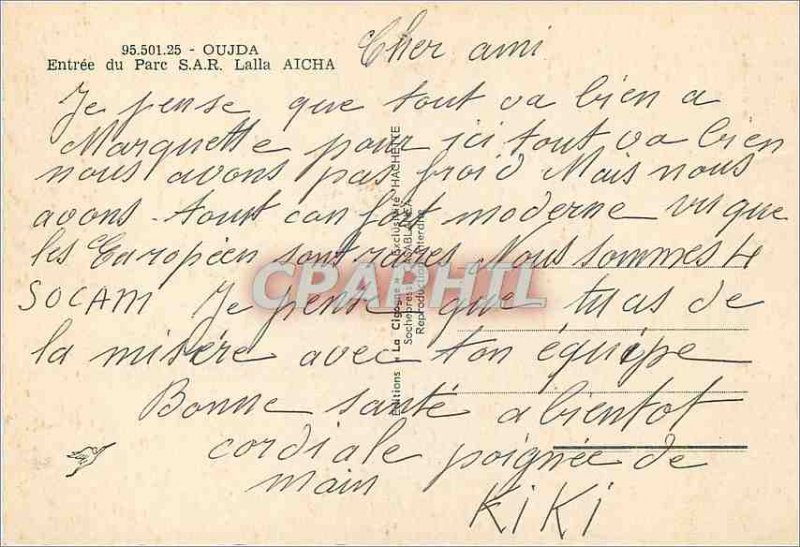 95.501.25 - OUJDA
Entrée du Parc S.A.R. Lalla AICHA
Cher ami
Je pense que tout va bien a
Marquette pour ici tout va bien
nous avons pas froid Mais nous
avons tout con fort moderne vu que
les Européen sont rares Nous sommes 4
SOCAM Je pense que tu as de
la misère avec ton équipe
Bonne santé a bientot
cordiale poignée de
main
KiKi
Editions "La Cigogne" - Exclusivité HACHETTE
Sochepress - CASABLANCA
Reproduction interdite
CPARPHIL